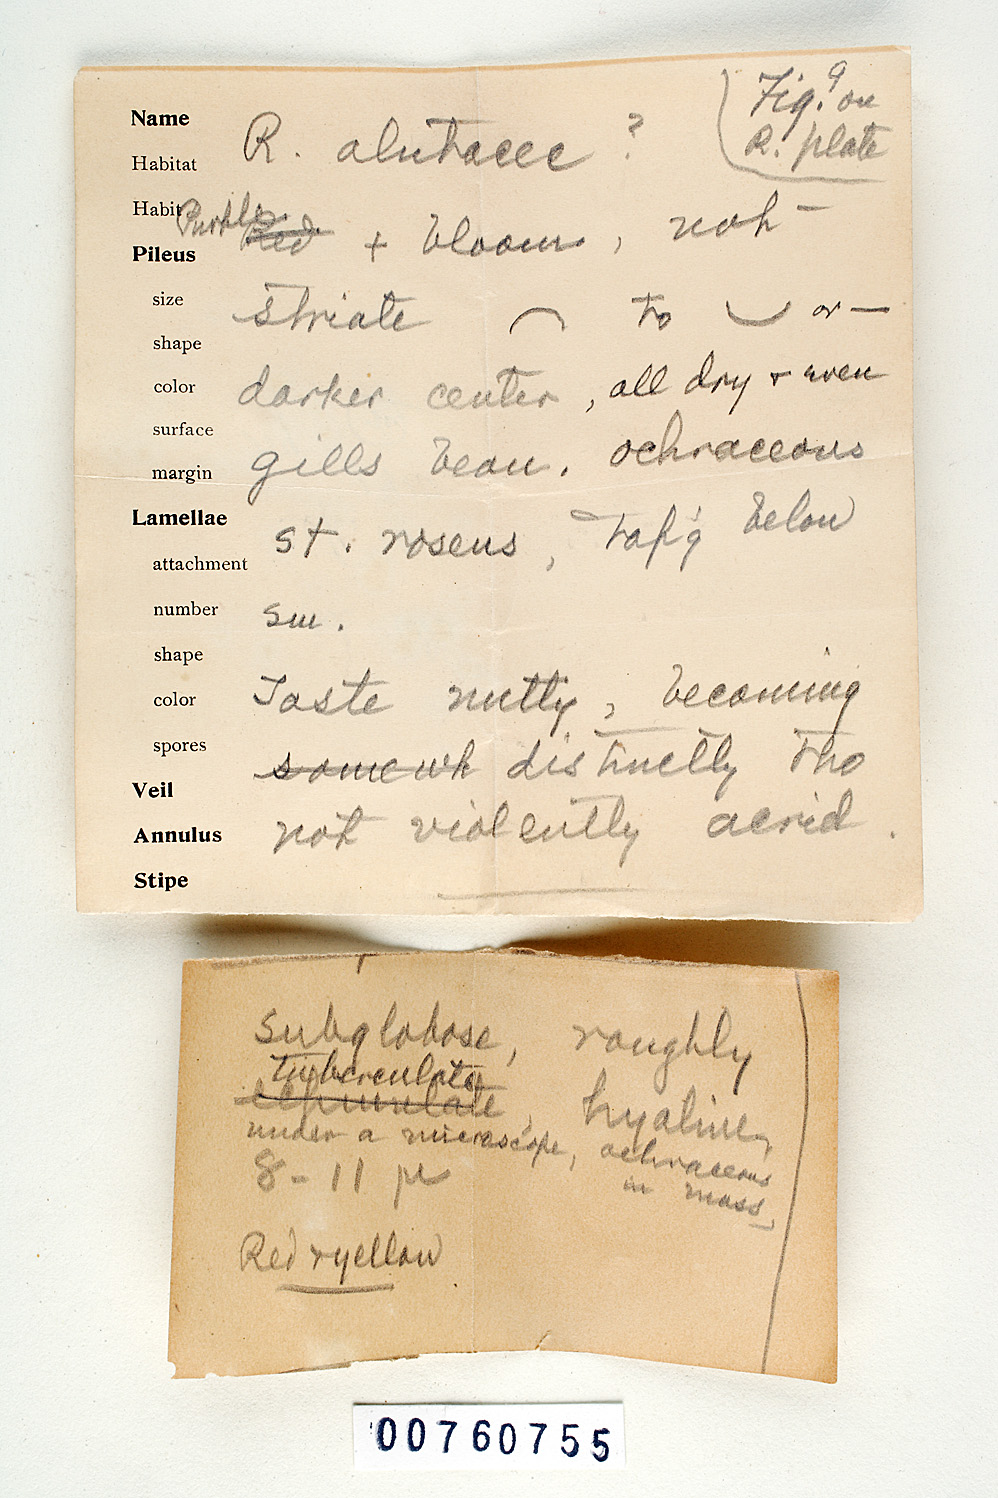 Fig. 9 on
R. plate
Name
R. alutacee ?
Habitat
Habit
Purple
Red + bloom, not -
Pileus
size
striate ⌒ to ‿ or —
shape
color
darker center, all dry + even
surface
gills beau. ochraceous
margin
Lamellae
st. roseus, tap'g below
attachment
number
sm.
shape
color
Taste nutty, becoming
spores
somewh distinctly tho
Veil
Annulus
not violently acrid.
Stipe
subglobose, roughly
tuberculate
echinulate, hyaline,
under a microscope, ochraceous
in mass,
8-11 µ
Red + yellow
00760755